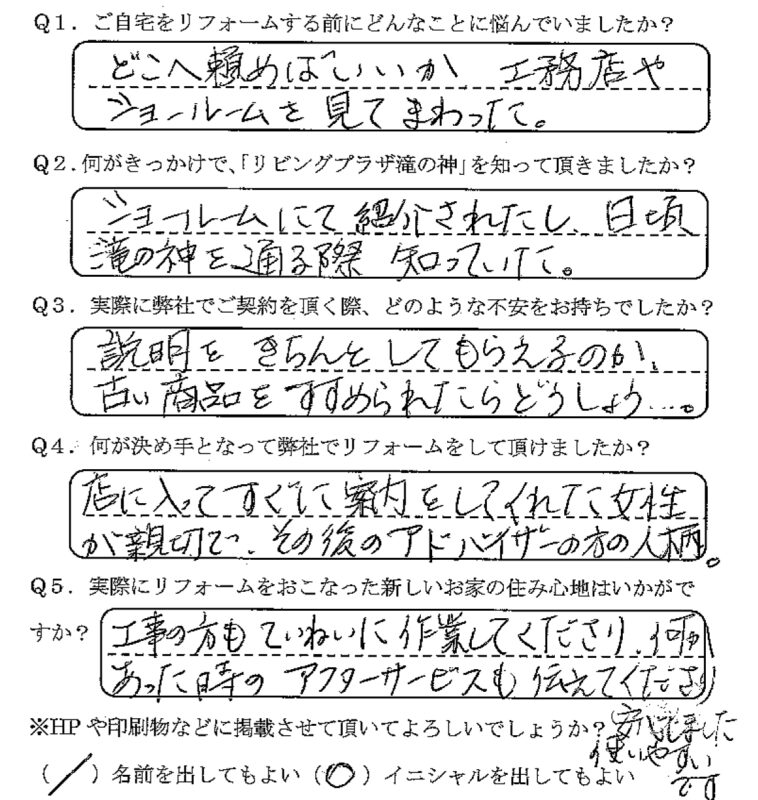 Q1．ご自宅をリフォームする前にどんなことに悩んでいましたか？
どこへ頼めばいいか 工務店や
ショールームを見てまわった。
Q2．何がきっかけで、「リビングプラザ滝の神」を知って頂きましたか？
ショールームにて紹介されたし、日頃
滝の神を通る際 知っていた。
Q3．実際に弊社でご契約を頂く際、どのような不安をお持ちでしたか？
説明をきちんとしてもらえるのか、
古い商品をすすめられたらどうしよう…。
Q4．何が決め手となって弊社でリフォームをして頂けましたか？
店に入ってすぐに案内をしてくれた女性
が親切で、その後のアドバイザーの方の人柄。
Q5．実際にリフォームをおこなった新しいお家の住み心地はいかがで
すか？
工事の方もていねいに作業してくださり、何か
あった時のアフターサービスも伝えてくださり
安心しました
使いやすい
です
※HPや印刷物などに掲載させて頂いてよろしいでしょうか？
（／）名前を出してもよい（○）イニシャルを出してもよい